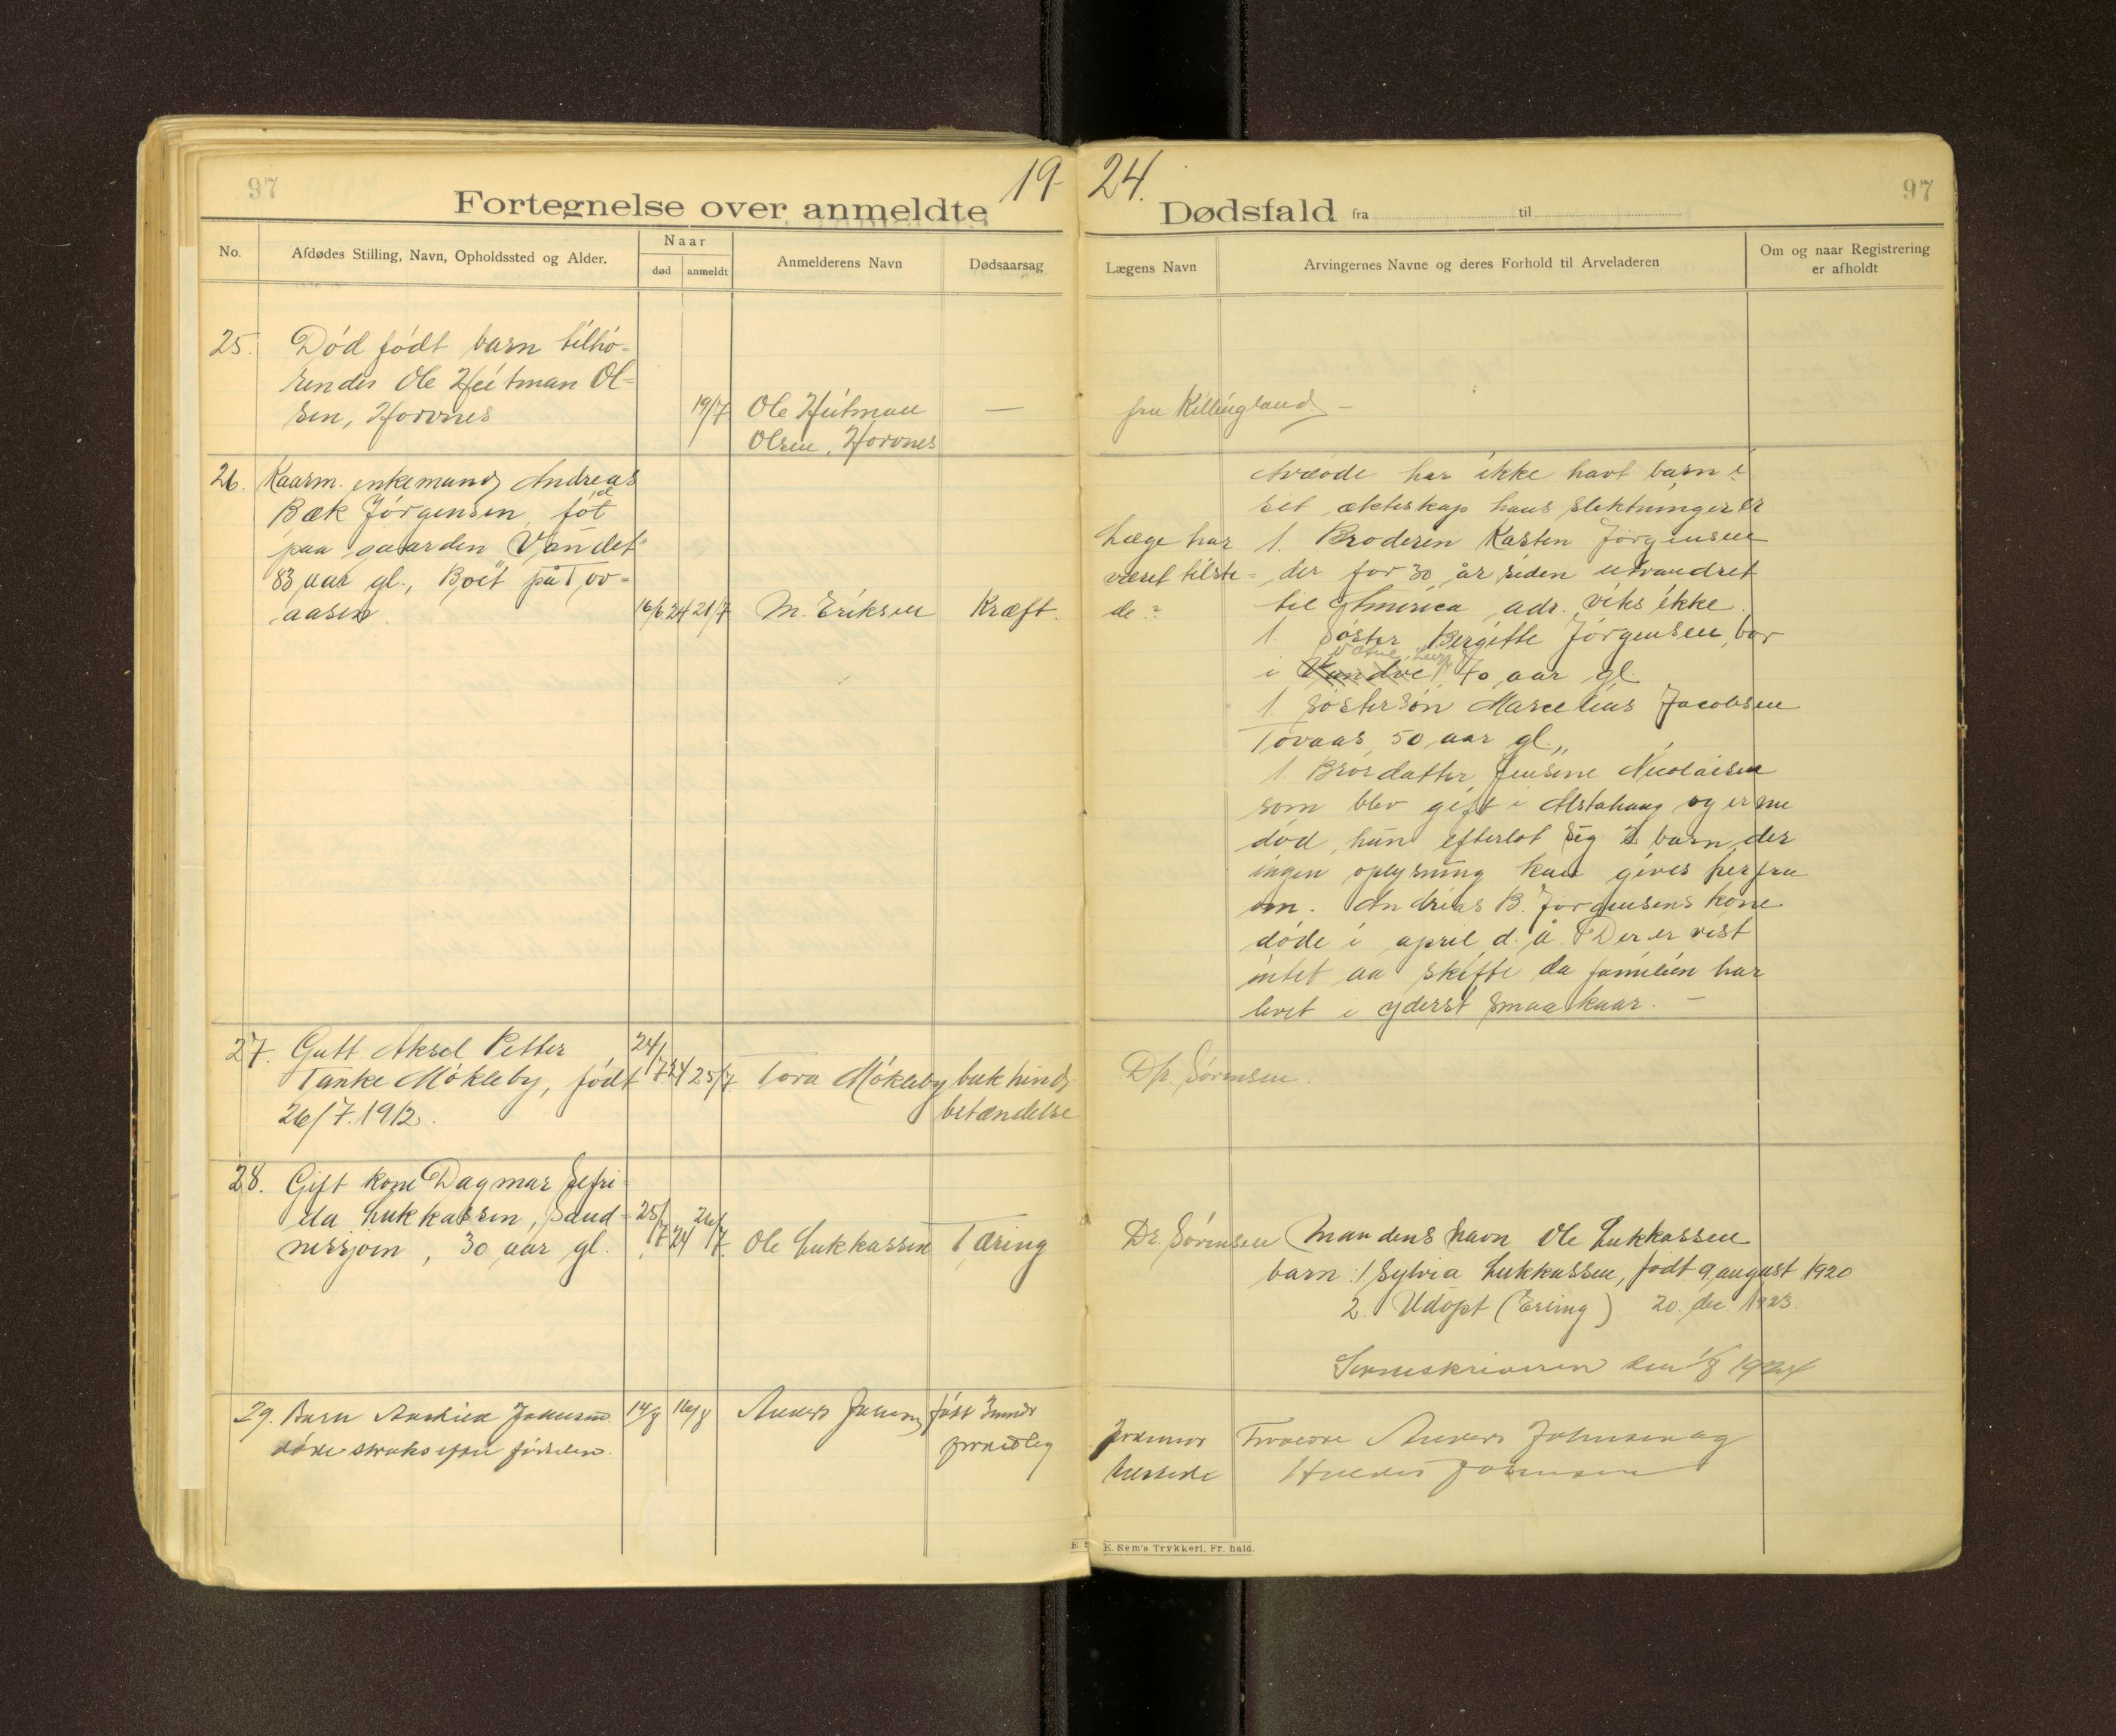 97
19
24.
97
Fortegnelse over anmeldte
Dødsfald fra til
No.
Afdødes Stilling, Navn, Opholdssted og Alder.
Naar
død
anmeldt
Anmelderens Navn
Dødsaarsag
Lægens Navn
Arvingernes Navne og deres Forhold til Arveladeren
Om og naar Registrering
er afholdt
25.
Død født barn tilhø-
rendes Ole Heitman Ol-
sen, Horvnes
19/7
Ole Heitman
Olsen, Horvnes
—
fru Killingland. —
26.
Kaarm. enkemand Andreas
Bæk Jørgensen, født
paa gaarden Vandet
83 aar gl., Boet på Tov-
aasen.
16/6.24
21/7
M. Eriksen
Kræft.
Læge har
været tilste-
de?
Avdøde har ikke havt barn i
sit ækteskap hans slektninger er
1. Broderen Karsten Jørgensen
der for 30 år siden utvandret
til America adr. viks ikke.
1. Søster Bergitte Jørgensen, bor
i Vandve 70 aar gl.
1. søstersøn Marcelius Jacobsen
Tovaas 50 aar gl.,,
1. Brordatter Jensine Nicolaisen
som blev gift i Alstahaug og er nu
død, hun efterlot sig 2 barn der
ingen oplysning kan gives herfra
om. Andreas B. Jørgensens kone
døde i april d. å. Der er vist
intet aa skifte da familien har
levet i yderst smaa kaar. —
27.
Gutt Aksel Petter
Tanke Møkleby, født
26/7.1912.
24/7 24
25/7.
Tora Møkleby
bukhinds
betændelse
Dr. Sørensen.
28.
Gift kone Dagmar Sefri-
da Lukkassen, Sand-
nessjøen, 30 aar gl.
25/7 24
26/7
Ole Lukkassen
Tæring
Dr. Sørensen
Mandens navn Ole Lukkassen
barn: 1 Sylvia Lukkassen, født 9 august 1920
2. Udøpt (Erling) 20. dec. 1923.
Sorenskriveren den 1/8 1924
29.
Barn Johnsen.
døde straks efter fødselen.
14/8
16/8
Anders
født
Jordmor
tilstede
Anders Johnsen og
Johnsen
E. Sem's Trykkeri. Fr. hald.